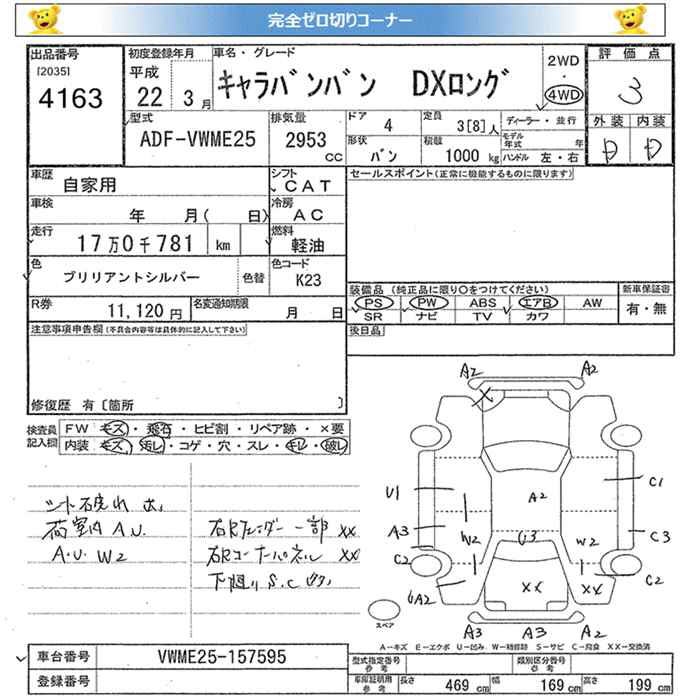 完全ゼロ切りコーナー
出品番号
[2035]
4163
初度登録年月
平成
22 3月
車名・グレード
キャラバンバン DXロング
2WD
・
4WD
評価点
3
型式
ADF-VWME25
排気量
2953
CC
ドア
4
定員
3[8]人
ディーラー・並行
モデル年式 年
ハンドル 左・右
形状
バン
積載
1000 kg
外装 内装
D D
車歴
自家用
シフト
CAT
セールスポイント(正常に機能するものに限ります)
車検
年 月( 日)
冷房
AC
走行
17万0千781 km
燃料
軽油
色
ブリリアントシルバー
色替
色コード
K23
装備品 (純正品に限り○をつけてください)
新車保証書
PS PW ABS エアB AW
有・無
SR ナビ TV カワ
R券
11,120円
名変通知期限
月 日
後日品
注意事項申告欄(不具合内容等は具体的に記入して下さい)
修復歴 有〔箇所 〕
検査員
記入欄
FW キズ・飛石・ヒビ割・リペア跡・×要
内装 キズ・汚レ・コゲ・穴・スレ・キレ・破レ
シート破れ 大
荷室内 A.U.
A.U. W2
右Rフェンダー 一部 XX
右Rコーナーパネル XX
下廻り S.C
A2 A2
X
U1
A2
C1
A3
W2
U3
W2
C3
C2
XX
XX
C2
UA2
A3 A3 A2
スペア
A－キズ E－エクボ U－凹み W－補修跡 S－サビ C－腐食 XX－交換済
車台番号
VWME25-157595
登録番号
型式指定番号
参考
類別区分番号
参考
車庫証明用
参考
長さ 469 cm
幅 169 cm
高さ 199 cm